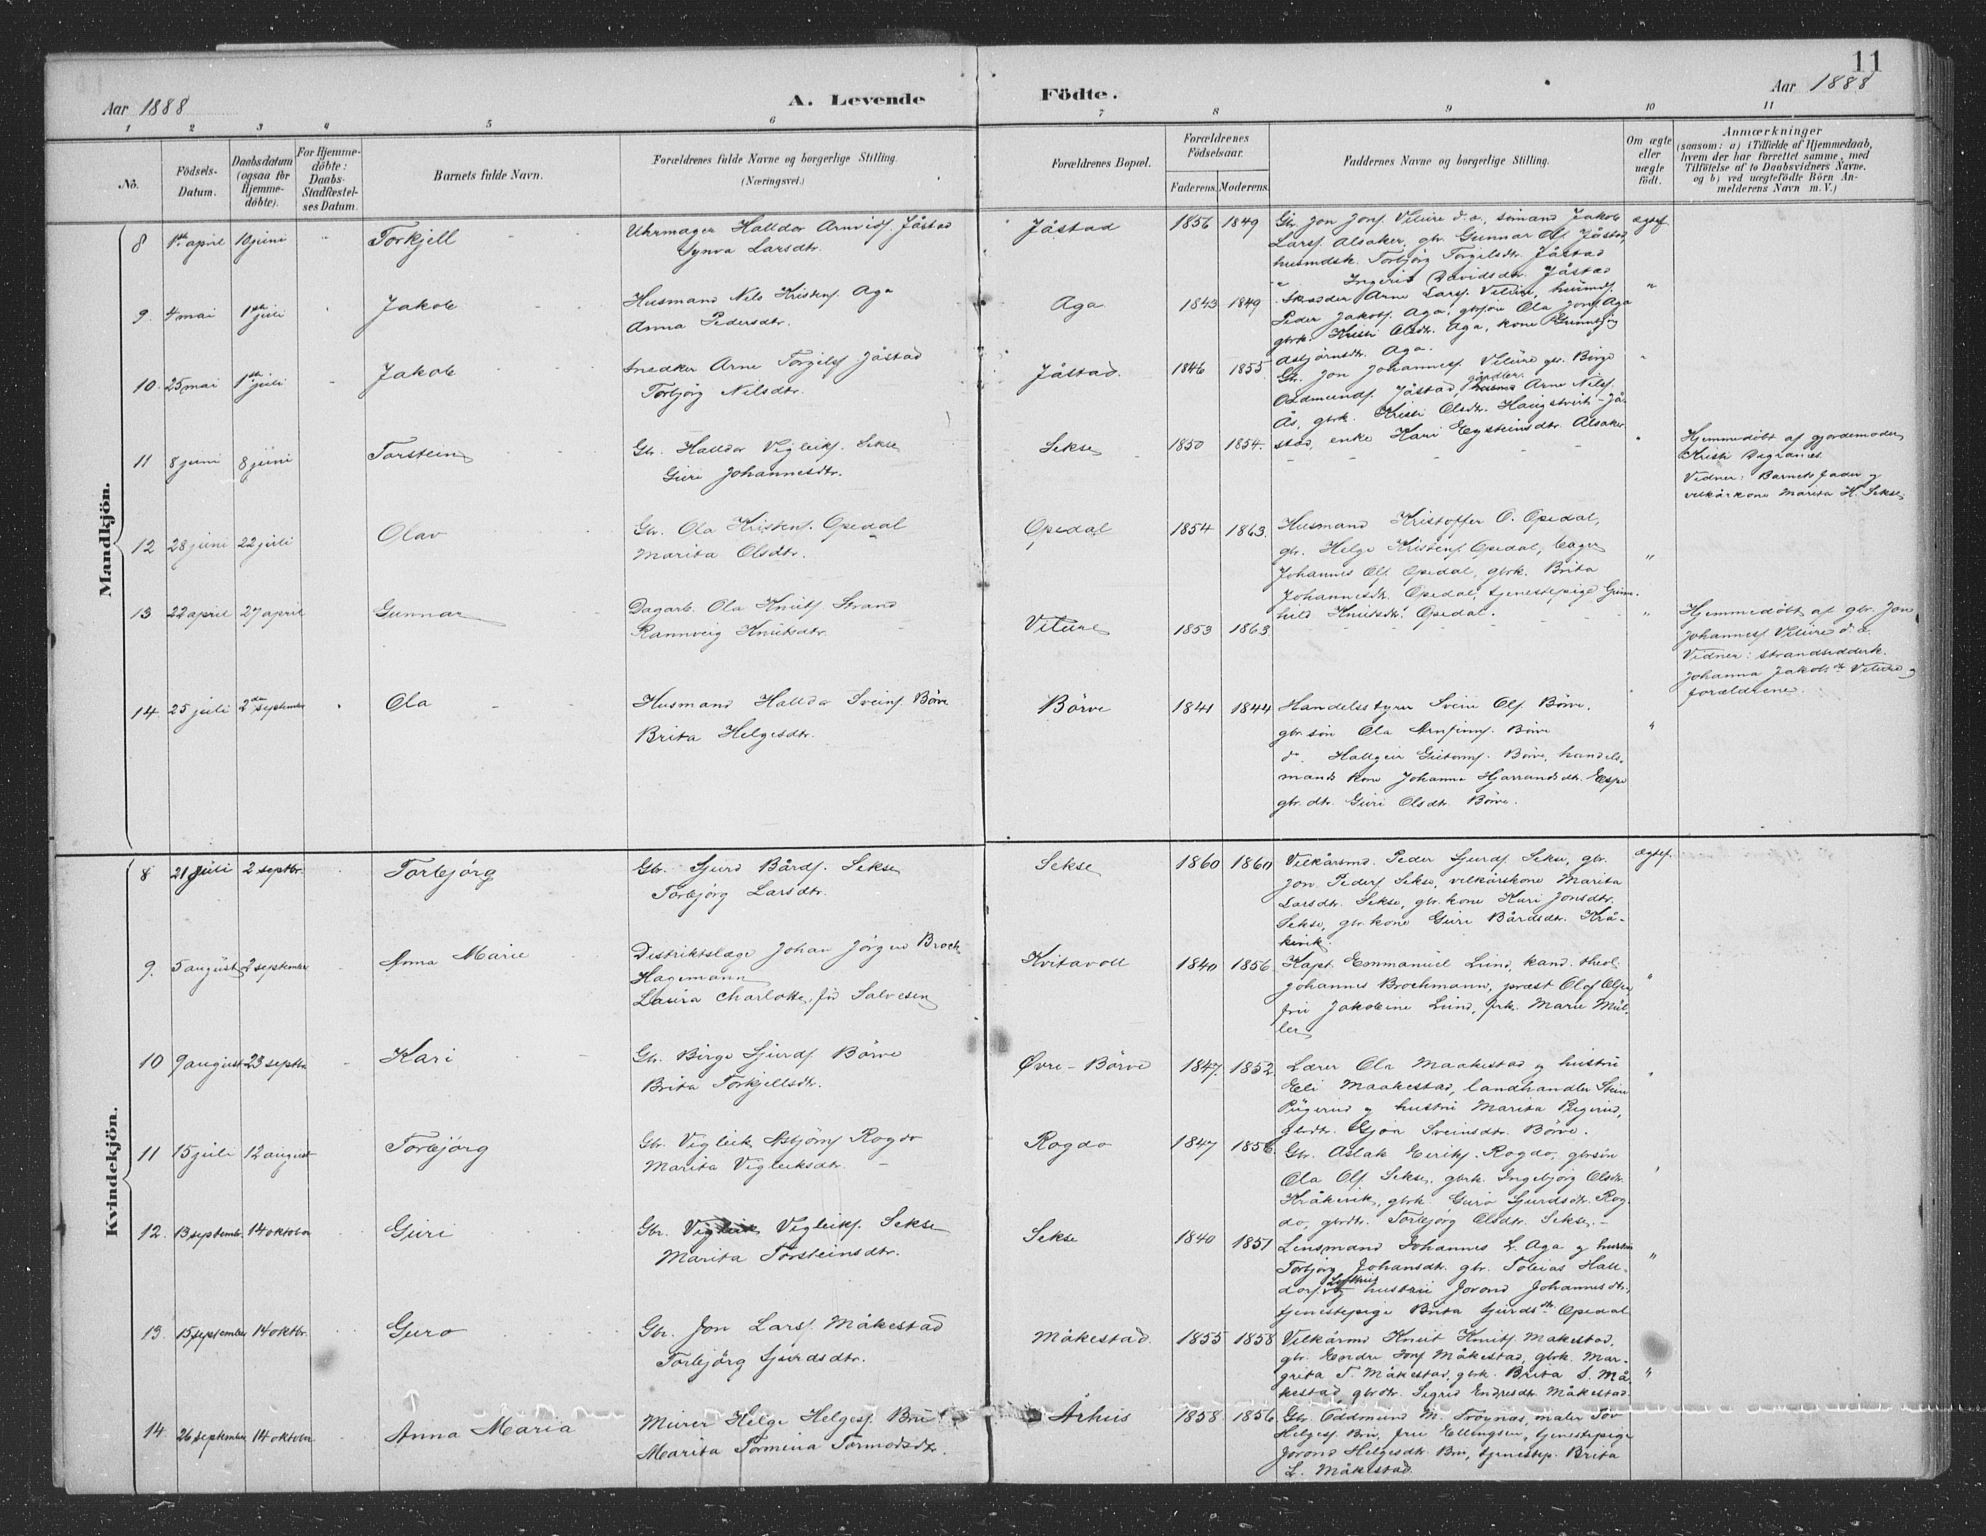 11
Aar 1888 A. Levende Födte. Aar 1888
1 2 3 4 5 6 7 8 9 10 11
No.
Födsels-
Datum.
Daabsdatum
(ogsaa for
Hjemme-
döbte).
For Hjemme-
döbte:
Daabs-
Stadfæstel-
ses Datum.
Barnets fulde Navn.
Forældrenes fulde Navne og borgerlige Stilling.
(Næringsvei.)
Forældrenes Bopæl.
Forældrenes
Födselsaar.
Faderens. Moderens.
Faddernes Navne og borgerlige Stilling.
Om ægte
eller
uægte
födt.
Anmærkninger
(saasom: a) i Tilfælde af Hjemmedaab,
hvem der har forrettet samme, med
Tilföielse af to Daabsvidners Navne.
og b) ved uægtefödte Börn An-
melderens Navn m. V.)
Mandkjön.
8 1ste april 10 juni " Torkjell
Uhrmager Halldor Arnvidsf. Jåstad
Synva Larsdtr.
Jåstad 1856 1849
Gbr. Jon Jonsf. Vilure d.æ., sömand Jakob
Larsf. Alsaker, gbr. Gunnar Olsf. Jåstad,
husmdsk. Torbjörg Torgilsdtr. Jåstad
" Ingerid Davidsdtr. Jåstad
ægtef.
9. 4 mai 1ste juli Jakob
Husmand Nils Kristensf. Aga
Anna Pedersdtr.
Aga 1843 1849
Skræder Arne Larsf. Vilure, husmd.
Peder Jakobsf. Aga, gbrsön Ola Jonsf. Aga
gbrk. Kristi Olsdtr. Aga, kone Gunnbjörg
Asbjörnsdtr. Aga.
"
10. 25 mai 1ste juli Jakob
Snedker Arne Torgilsf. Jåstad
Torbjörg Nilsdtr.
Jåstad. 1846 1855
Gbr. Jon Johannesf. Vilure gbr. Birge
Oddmundsf. Jåstad, Arne Nilsf.
Ås, gbrk. Kristi Olsdtr. Haugstveit-Jå-
stad, enke Kari Eysteinsdtr. Alsaker
"
11 8 juni 8 juni Torstein
Gbr. Halldor Vigleiksf. Sekse
Guri Johannesdtr.
Sekse 1850 1854.
"
Hjemmedöbt af gjordemoder
Kristi Digranes.
Vidner: Barnets fader og
vilkårkone Marita H. Sekse
12 28 juni 22 juli Olav
Gbr. Ola Kristensf. Opedal
Marita Olsdtr.
Opedal 1854 1863.
Husmand Kristoffer O. Opedal,
gbr. Helge Kristensf. Opedal, bager
Johannes Olsf. Opedal, gbrk. Brita
Johannesdtr. Opedal, tjenestepige Gun-
hild Knutsdtr. Opedal.
"
13 22 april 27 april Gunnar
Dagarb. Ola Knutsf. Strand
Rannveig Knutsdtr.
Vilure 1853 1863.
"
Hjemmedöbt af gbr. Jon
Johannesf. Vilure d.æ.
Vidner: strandsidderk.
Johanna Jakobsdtr. Vilure og
forældrene.
14 25 juli 2den september Ola
Husmand Halldor Sveinsf. Börve
Brita Helgesdtr.
Börve 1841 1844
Handelsstyrer Svein Olsf. Börve.
gbr. sön Ola Arnfinnsf. Börve
d. Hallgeir Guttormsf. Börve, handels-
mands kone Johanna Hjarrandsdtr. Espe
gbr. dtr. Guri Olsdtr. Börve.
"
Kvindekjön.
8 21 juli 2 septbr. Torbjörg
Gbr. Sjurd Bårdsf. Sekse
Torbjörg Larsdtr.
Sekse 1860 1860
Vilkårsmd. Peder Sjurdsf. Sekse, gbr.
Jon Pedersf. Sekse, vilkårskone Marita
Larsdtr. Sekse, gbr. kone Kari Jonsdtr.
Sekse, gbr. kone Guri Bårdsdtr. Krå-
kevik.
ægtef.
9. 5 august 2 september Anna Marie
Distriktslæge Johan Jörgen Broch
Hagemann
Laura Charlotte, föd Salvesen
Kvitavoll 1840 1856
Kapt. Emmanuel Lund, kand. theol.
Johannes Brochmann, præst Olof Olsen
fru Jakobine Lund, frk. Marie Mül-
ler
"
10 9 august 23 septbr Kari
Gbr. Birge Sjurdsf. Börve
Brita Torkjellsdtr.
Øvre-Börve 1847. 1852
Lærer Ola Maakestad og hustru
Eli Maakestad, landhandler Svein
Rügerud og hustru Marita Rugerud,
gbdtr. Gjöa Sveinsdtr. Börve.
"
11 15 juli 12 august Torbjörg
Gbr. Vigleik Asbjörnsf. Rogdo
Marita Vigleiksdtr.
Rogdo 1847 1856.
Gbr. Aslak Eiriksf. Rogdo, gbrsön
Ola Olsf. Sekse, gbrk. Ingebjörg Olsdtr.
Kråkevik, gbrk. Guro Sjurdsdtr. Rog-
do, gbrdtr. Torbjörg Olsdtr. Sekse.
"
12. 13 septembr. 14 oktober Guri
Gbr. Vigleik Vigleiksf. Sekse
Marita Torsteinsdtr.
Sekse 1840 1851
Lensmand Johannes L. Aga og hustru
Torbjörg Johansdtr. gbr. Tobias Hall-
dorsf. Lofthus og hustru Jorond Johannesdtr.
tjenestepige Brita Sjurdsdtr. Opedal
"
13. 15 september 14 oktbr. Guro
Gbr. Jon Larsf. Måkestad
Torbjörg Sjurdsdtr.
Måkestad. 1855 1858
Vilkårmd Knut Knutsf. Måkestad,
gbr. Endre Jonsf. Måkestad, gbrk. Mar-
grita T. Måkestad, gbrk. Brita S. Må-
kestad, gbrdtr. Sigrid Endresdtr. Måkestad.
"
14. 26 september 14 oktober Anna Maria
Murer Helge Helgesf. Bru
Marita Tormina Tormodsdtr.
Århus 1858. 1856
Gbr. Oddmund M. Tröynas, maler Tor
Helgesf. Bru, fru Ellingsen, tjenestepige
Jorond Helgesdtr. Bru, tjenestep. Brita
L. Måkestad.